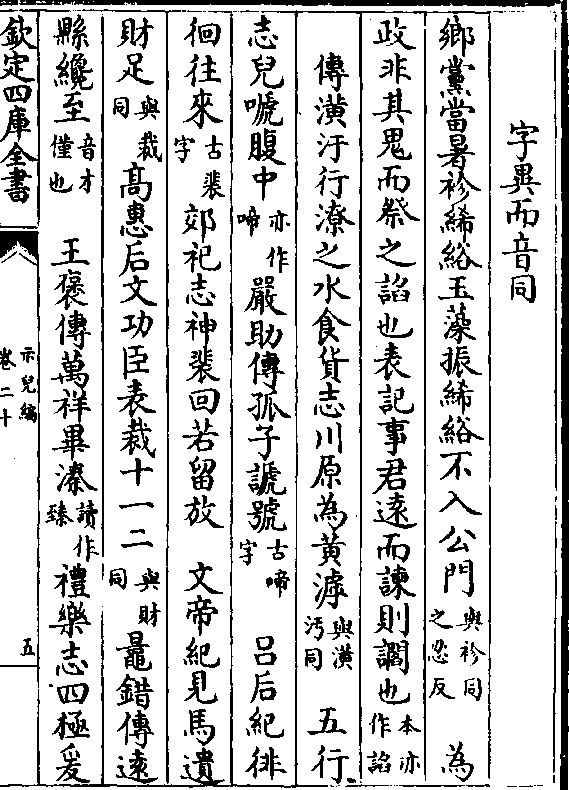 字異而音同
鄉黨當暑袗絺綌玉藻振絺綌不入公門與袗同之忍反為
政非其鬼而祭之諂也表記事君遠而諫則讇也本亦作諂
傳潢汙行潦之水食貨志川原為黄洿與潢汚同五行
志兒嗁腹中亦作啼嚴助傳孤子謕號古啼字呂后紀徘
徊往來古裴字郊祀志神裴回若留放文帝紀見馬遺
財足與裁同髙惠后文功臣表裁十一二與財同鼂錯傳遠
縣纔至音才僅也王襃傳萬祥畢溱讀作臻禮樂志四極爰
欽定四庫全書
示兒編
卷二十
五